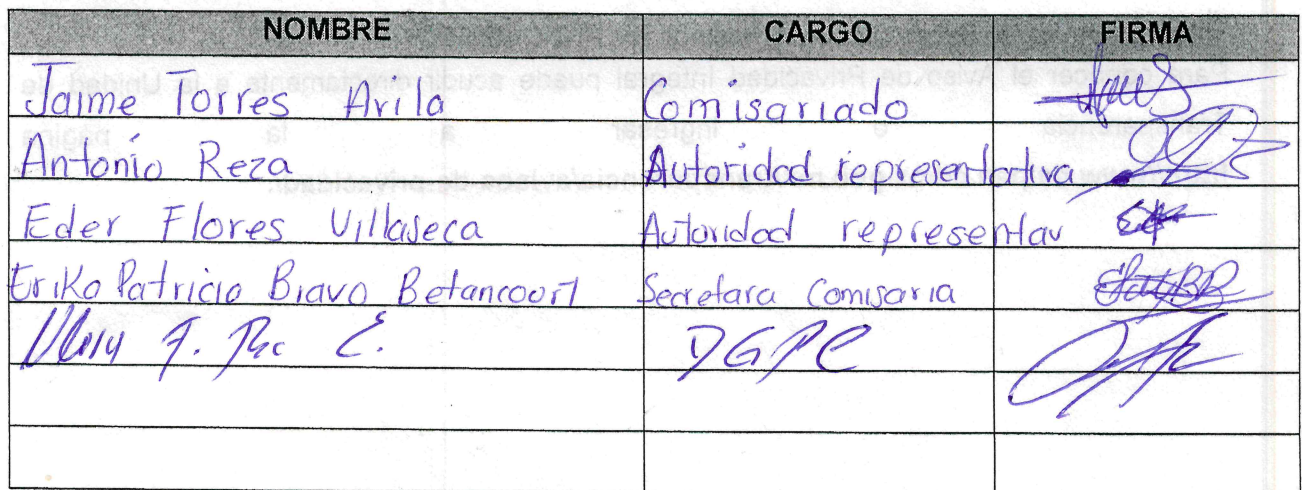 NOMBRE CARGO FIRMA
Jaime Torres Avila Comisariado
Antonio Reza Autoridad representativa
Eder Flores Villaseca Autoridad representav
Erika Patricia Bravo Betancoort Secretara Comisaria
F. E. DGPC